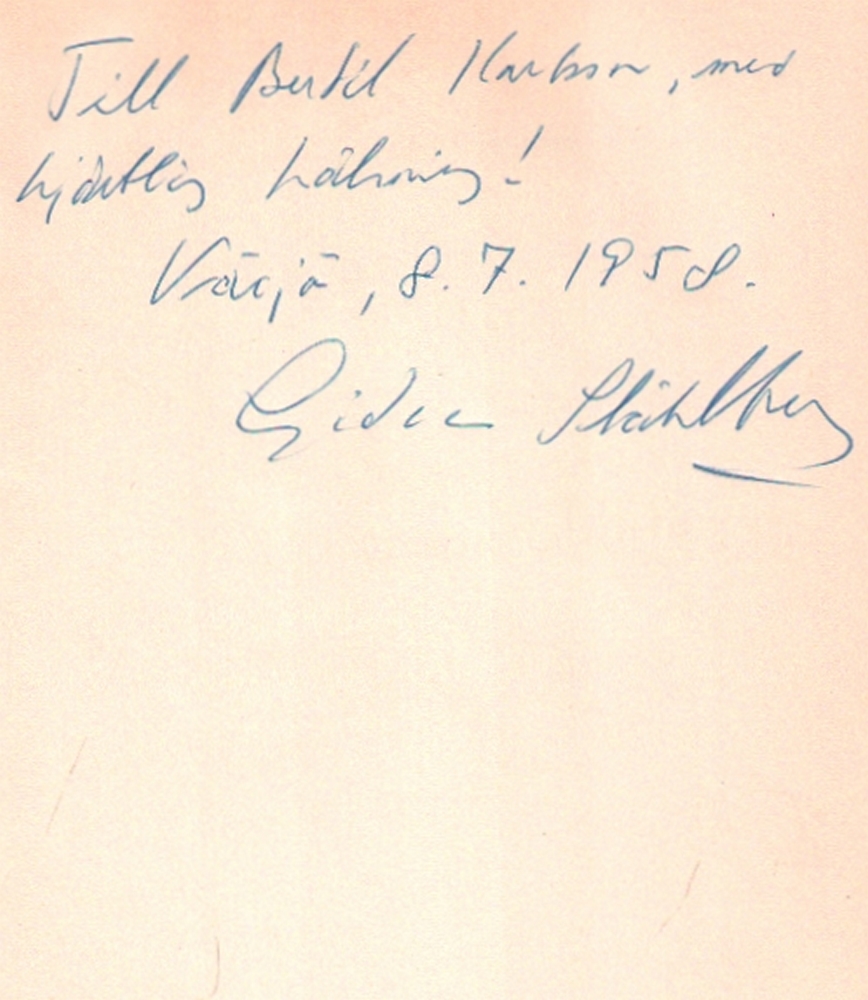 Till Bertil Karlsson, med
hjärtlig hälsning!
Växjö, 8.7.1958.
Gideon Ståhlberg